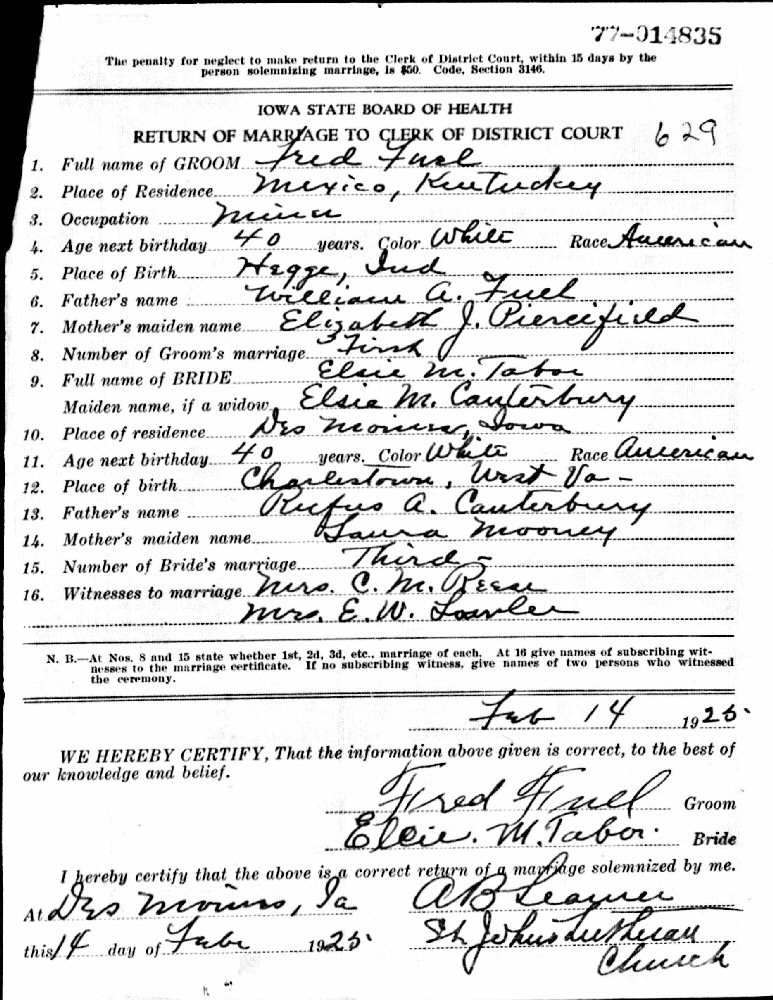 77-014835
The penalty for neglect to make return to the Clerk of District Court, within 15 days by the
person solemnizing marriage, is $50. Code, Section 3146.
IOWA STATE BOARD OF HEALTH
RETURN OF MARRIAGE TO CLERK OF DISTRICT COURT 629
1. Full name of GROOM Fred Fuel
2. Place of Residence Mexico, Kentuckey
3. Occupation Miner
4. Age next birthday 40 years. Color White Race American
5. Place of Birth Hegge, Ind
6. Father's name William A. Fuel
7. Mother's maiden name Elizabeth J. Piercifield
8. Number of Groom's marriage First
9. Full name of BRIDE Elsie M. Tabor
Maiden name, if a widow Elsie M. Canterbury
10. Place of residence Des Moines, Iowa
11. Age next birthday 40 years. Color White Race American
12. Place of birth Charlestown, West Va -
13. Father's name Rufus A. Canterbury
14. Mother's maiden name Laura Mooney
15. Number of Bride's marriage Third -
16. Witnesses to marriage Mrs. C. M. Reese
Mrs. E. W.
N. B.—At Nos. 8 and 15 state whether 1st, 2d, 3d, etc., marriage of each. At 16 give names of subscribing wit-
nesses to the marriage certificate. If no subscribing witness, give names of two persons who witnessed
the ceremony.
Feb 14 1925
WE HEREBY CERTIFY, That the information above given is correct, to the best of
our knowledge and belief.
Fred Fuel Groom
Elsie. M. Tabor. Bride
I hereby certify that the above is a correct return of a marriage solemnized by me.
At Des Moines, Ia AB
this 14 day of Feb 1925 St Johns Lutheran
Church